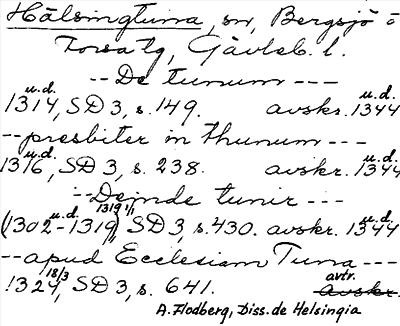 Hälsingtuna, sn, Bergsjö o
Forsa tg, Gävleb. l.
-- De tunum ---
1314, u.d. SD 3, s. 149. avskr. 1344 u.d.
-- presbiter in thunum ---
1316, u.d. SD 3, s. 238. avskr. 1344 u.d.
-- Deinde tunir ---
(1302 u.d. - 1319) 1319 1/1 SD 3, s. 430. avskr. 1344 u.d.
-- apud Ecclesiam Tuna ---
1324 18/3, SD 3, s. 641. avtr. avskr.
A. Flodberg, Diss. de Helsingia